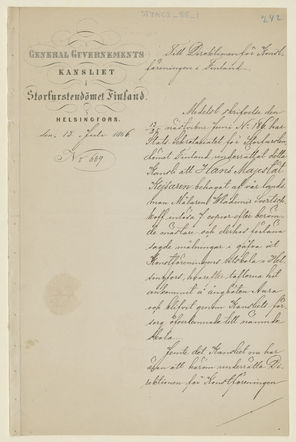 242
GENERAL GUVERNEMENTS
KANSLIET
i
Storfurstendömet Finland.
HELSINGFORS.
den 13 Juli 1866
No 669
Till Direktionen för Konst-
föreningen i Finland.
Medelst skrifvelse den
nästvikne Juni No 166 har
Stats Sekretariatet för Storfursten-
dömet Finland underrättat detta
Kansli att Hans Majestät
Kejsaren behagat af vår lands-
man Målaren Wladimir
inlösa 7 copior efter beröm-
de mästare och derhos förlära
sagde målningar i gåfva åt
Konstföreningens Ritskola i Hel-
singfors, hvarefter taflorna hit
ankommit å ångbåten Aura
och blifvit genom Kansliets för-
sorg öfverlemnade till nämnde
skola.
det Kansliet nu har
äran att härom underrätta Di-
rektionen för Konstföreningen